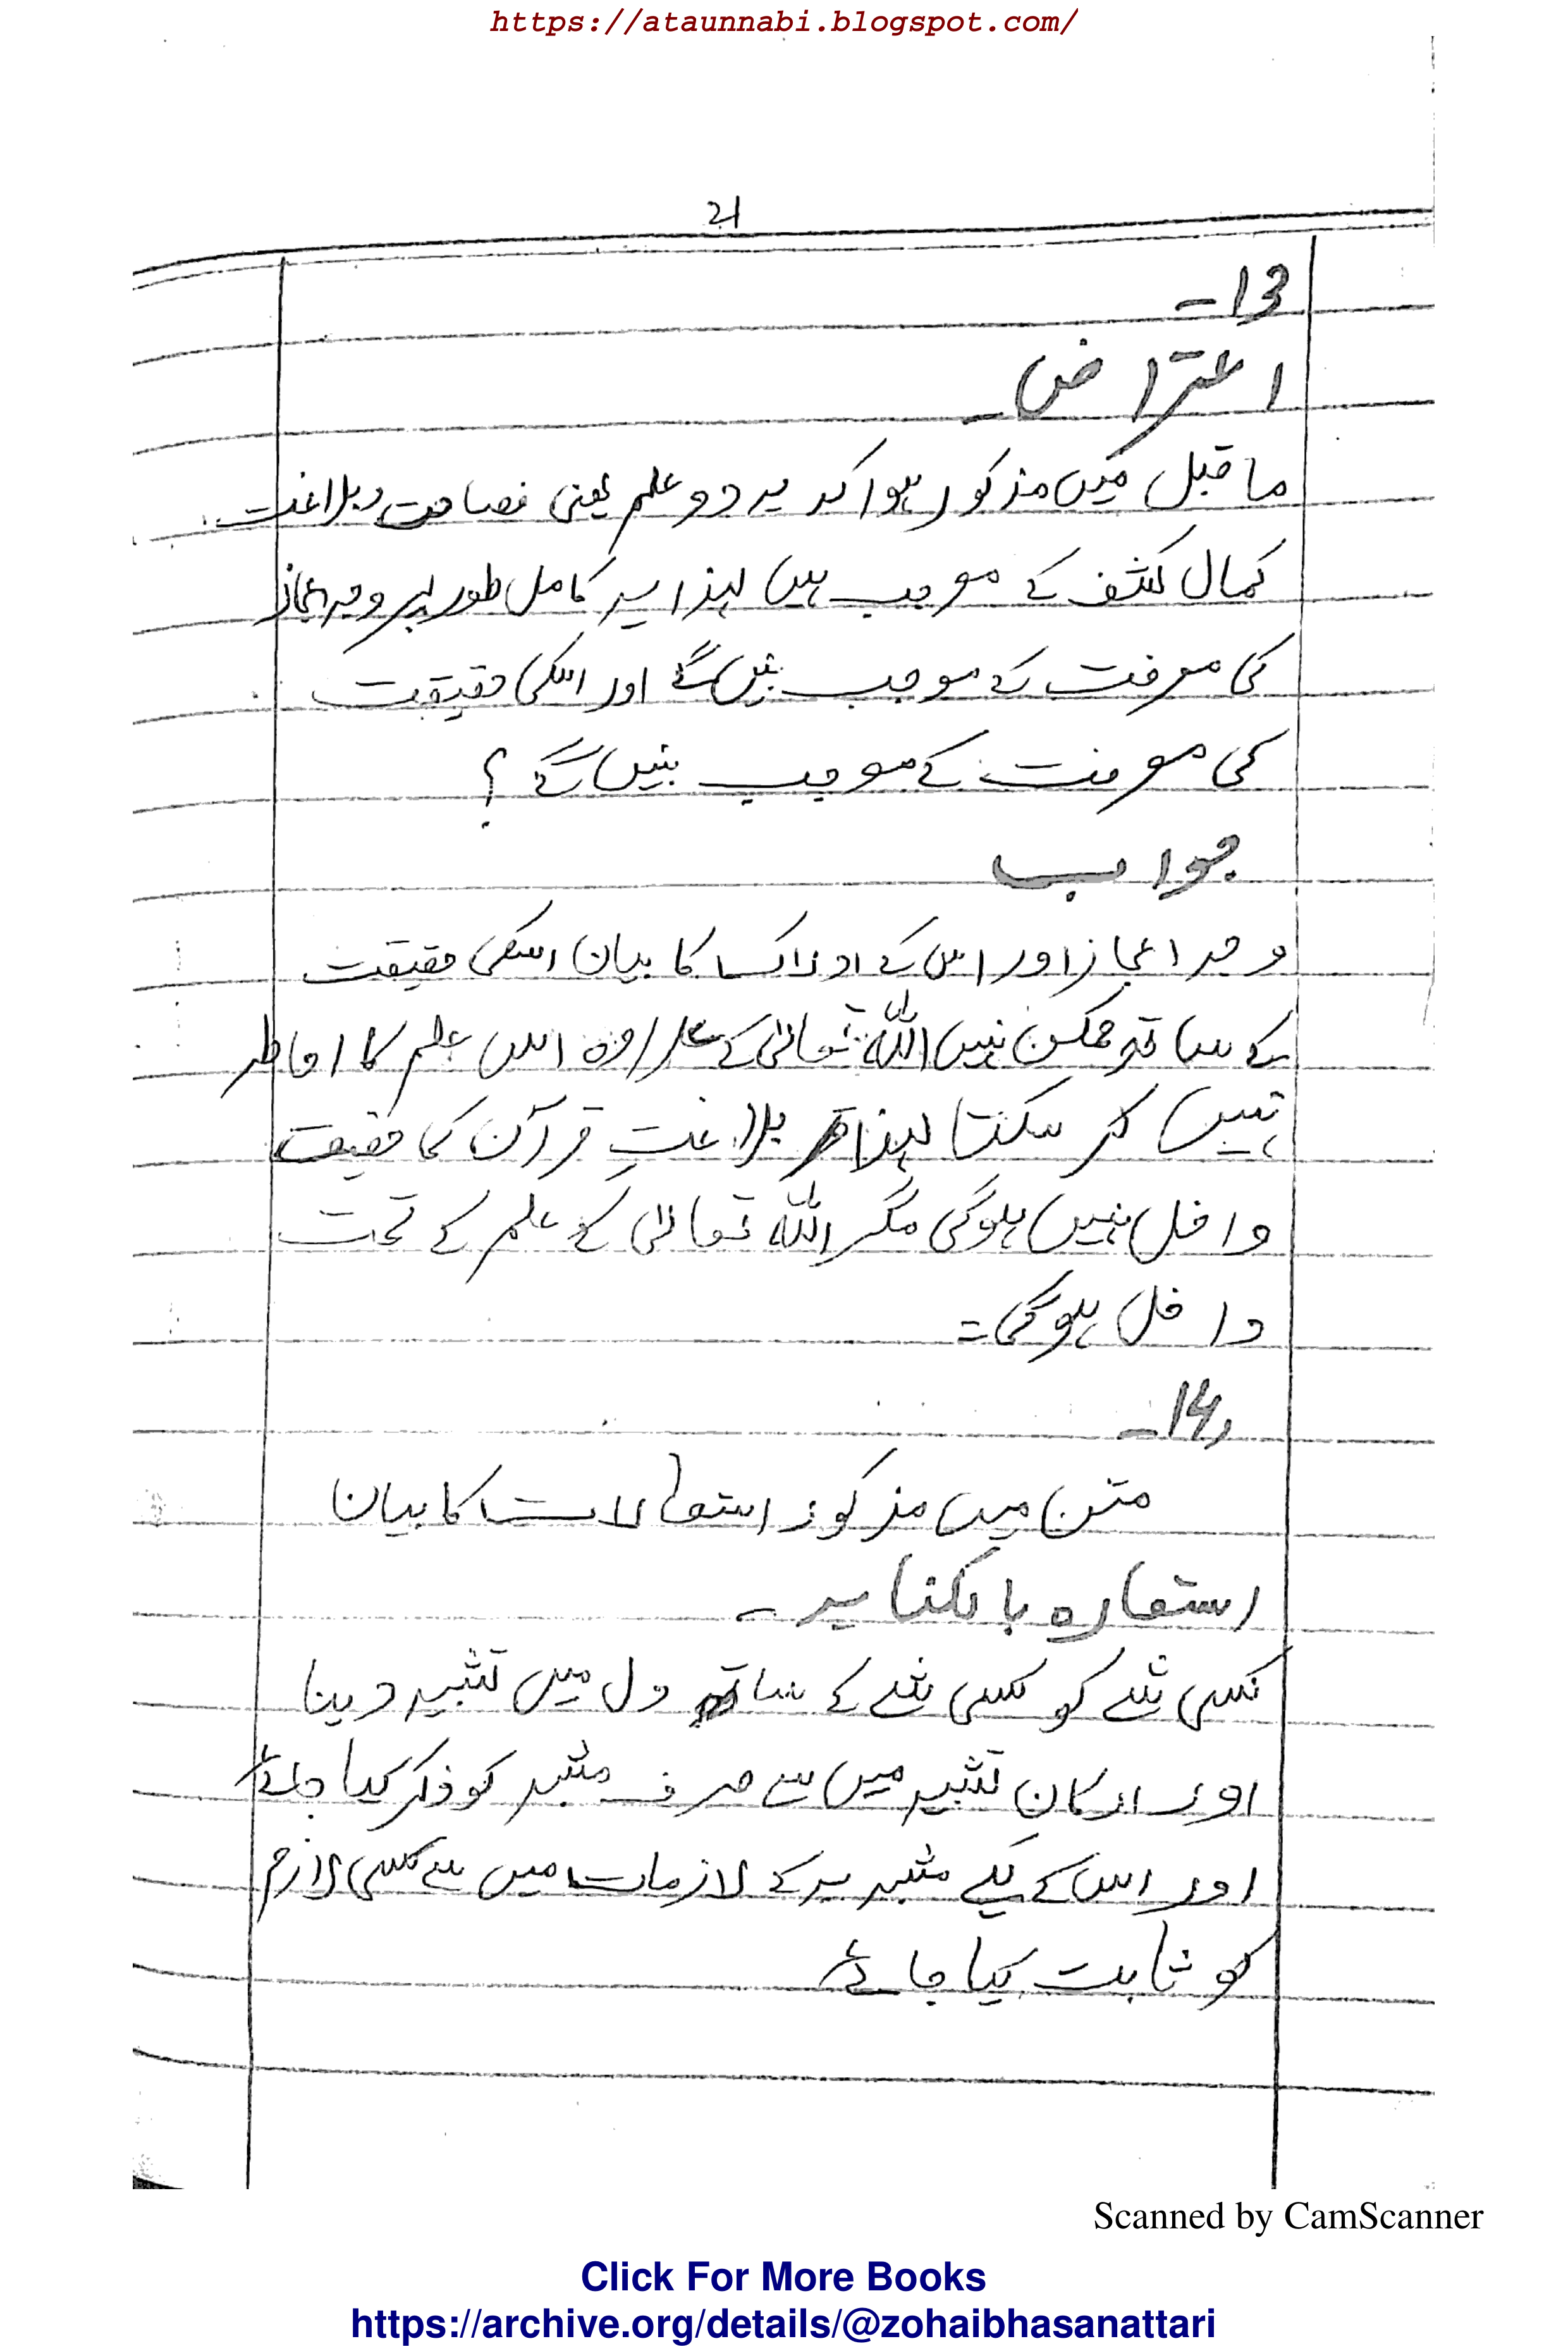 https://ataunnabi.blogspot.com/
21
13-
اعتراض۔
ما قبل میں مذکور ہوا کہ یہ دو علم یعنی فصاحت و بلاغت
کمال کشف کے موجب ہیں لہذا یہ کامل طور پر وجہ اعجاز
کی معرفت کے موجب بنیں گے اور اسکی حقیقت
کی معرفت کے موجب بنیں گے ؟
جواب
وجہ اعجاز اور اس کے ادراک کا بیان اسکی حقیقت
کے ساتھ ممکن نہیں اللہ تعالیٰ کے علاوہ اس علم کا احاطہ
نہیں کر سکتا لہذا بلاغتِ قرآن کی حقیقت
داخل نہیں ہوگی مگر اللہ تعالیٰ کے علم کے تحت
داخل ہوگی۔
14-
متن میں مذکور استعالات کا بیان
استعارہ بالکنایہ۔
کسی شے کو کسی شے کے ساتھ دل میں تشبیہ دینا
اور ارکانِ تشبیہ میں سے صرف مشبہ کو ذکر کیا جائے
اور اس کے لیے مشبہ بہ کے لازمات میں سے کسی لازم
کو ثابت کیا جائے
Scanned by CamScanner
Click For More Books
https://archive.org/details/@zohaibhasanattari